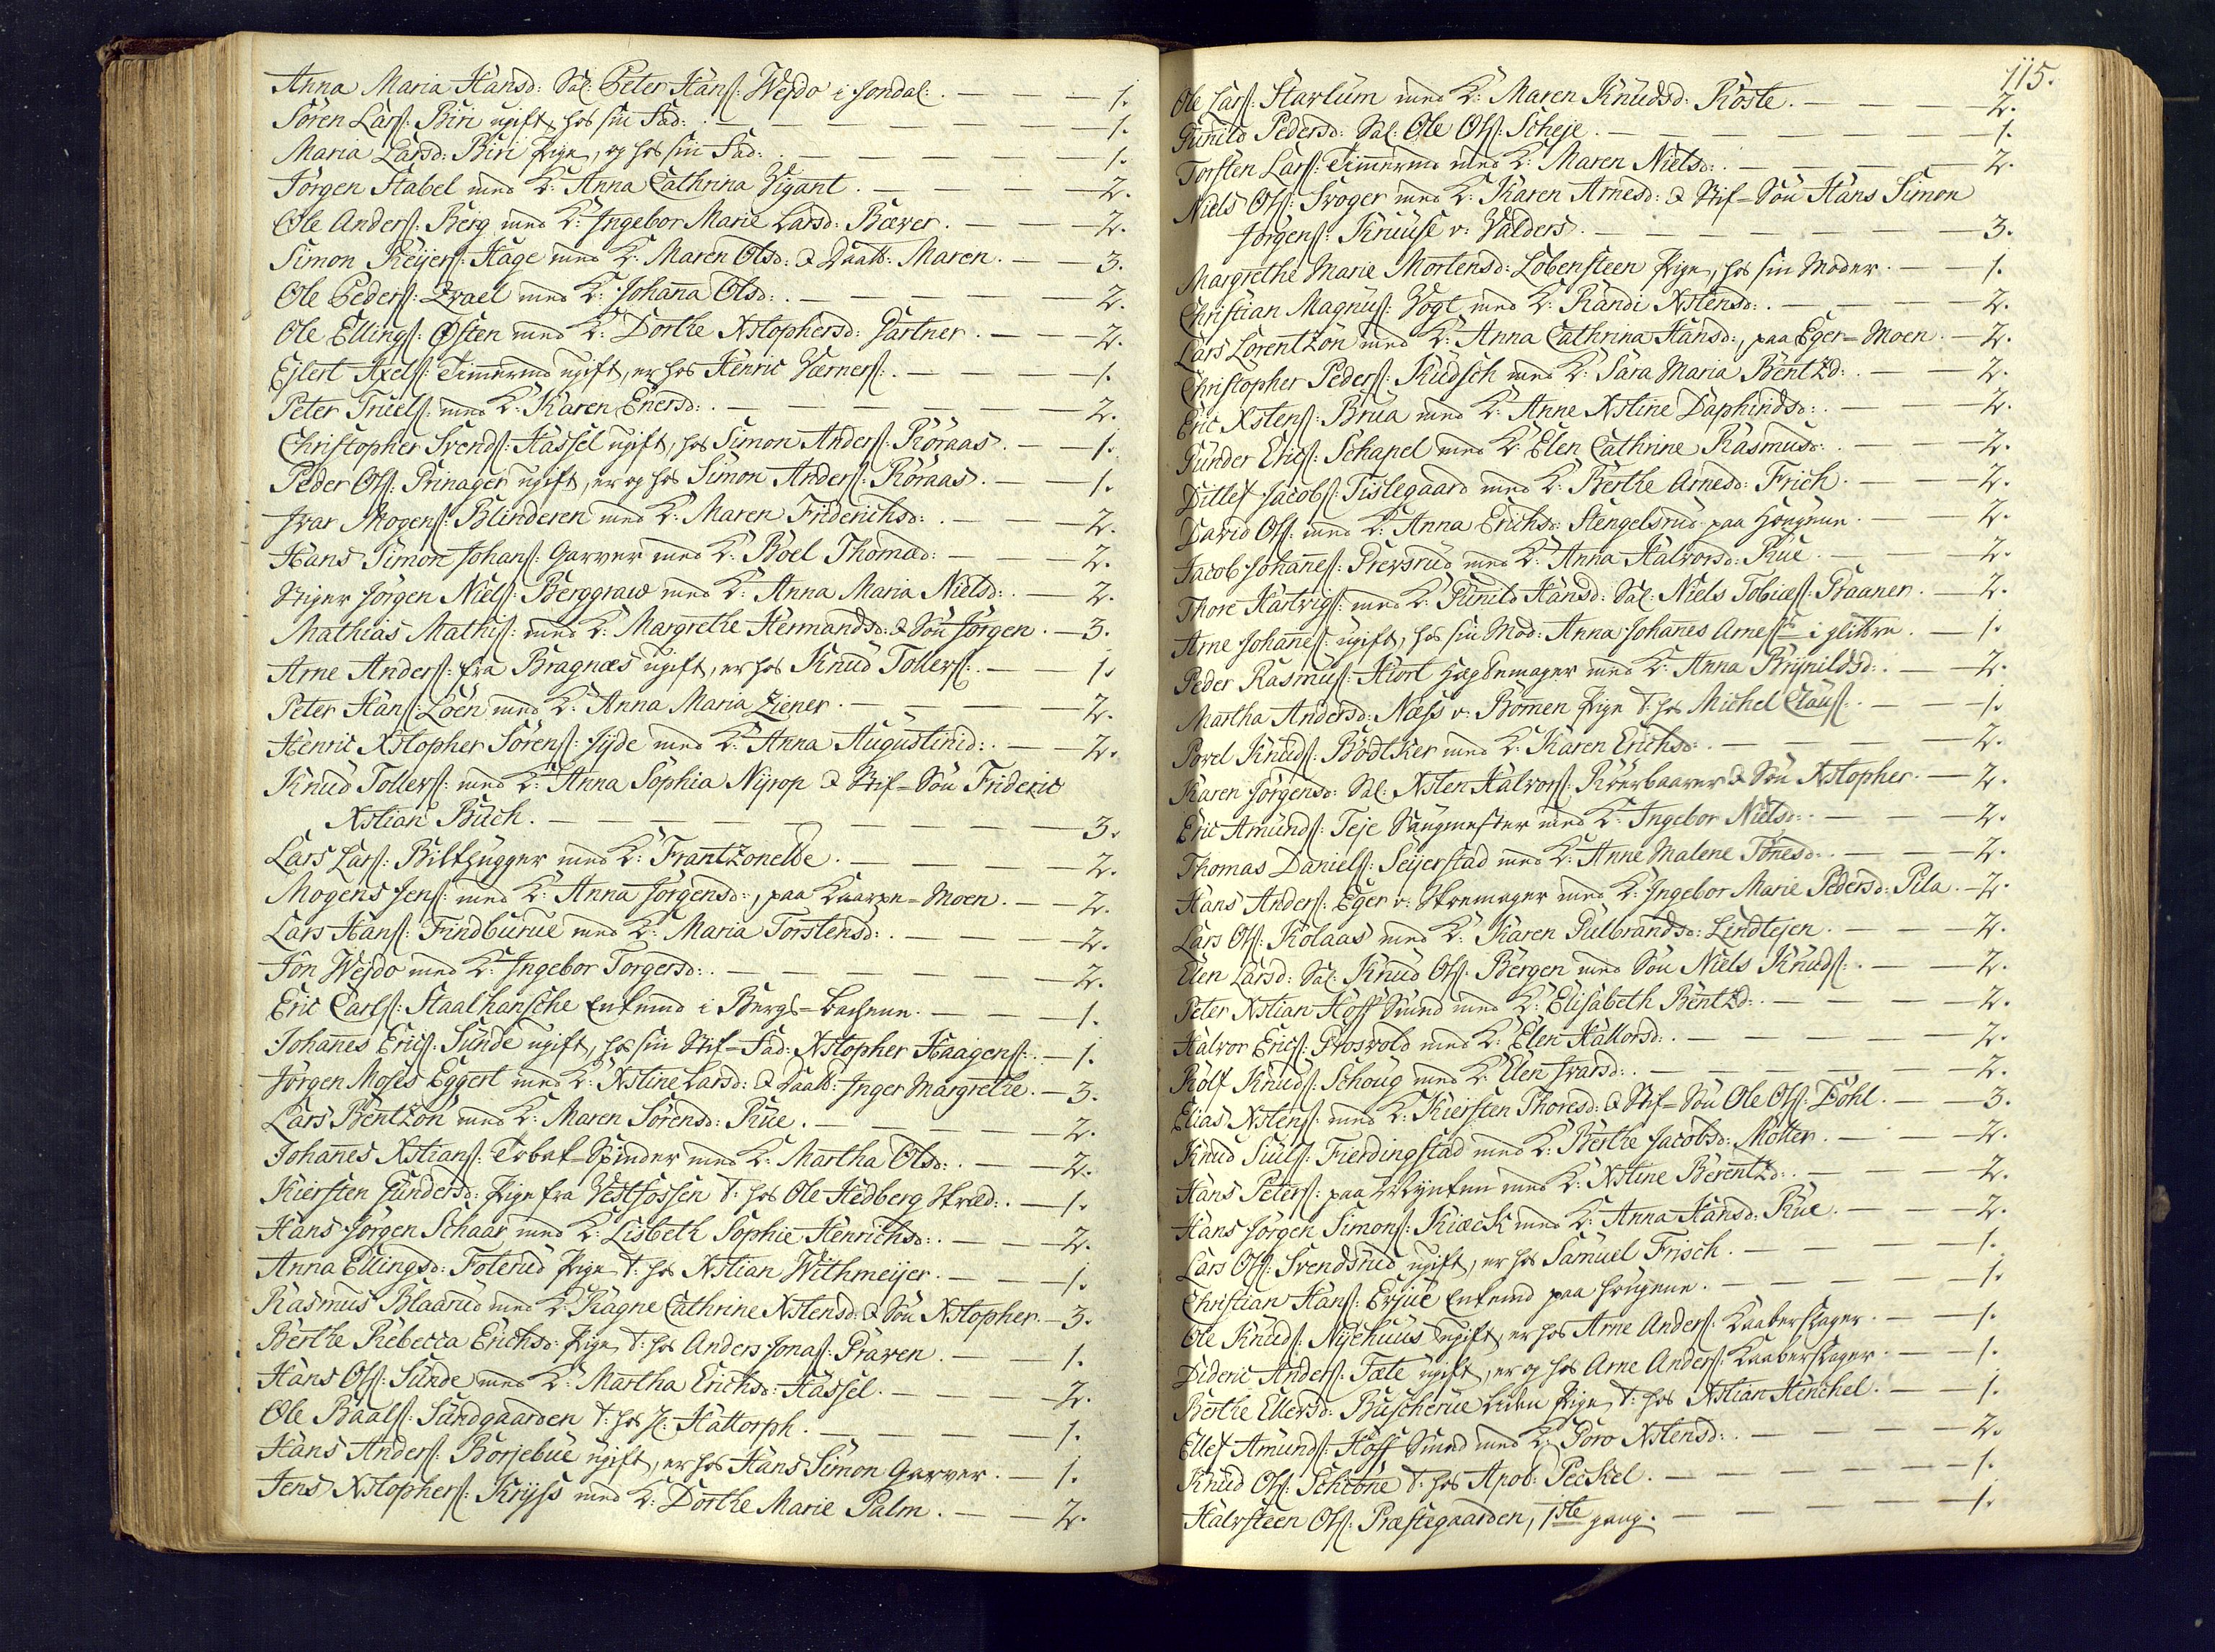 Anna Maria Hansd: Sal. Peter Hans: Wejdo i Jondal. — 1.
Sören Lars: Biri ugift, hos sin Fad: — 1.
Maria Larsd: Biri Pige, og hos sin Fad: — 1.
Jörgen Stabel med K: Anna Cathrina Vigant. — 2.
Ole Anders: Berg med K: Ingebor Marie Larsd: Bæver. — 2.
Simon Reijers: Hage med K: Maren Olsd: & Daatt: Maren. — 3.
Ole Peders: Zrael med K: Johanna Olsd: — 2.
Ole Ellings: Østen med K: Dorthe Xstophersd: Gartner. — 2.
Ejlert Axels: Timmermd ugift, er hos Henric Værners: — 1.
Peter Truels: med K: Karen Enersd: — 2.
Christopher Svends: Hassel ugift, hos Simon Anders: Röraas. — 1.
Peder Ols: Prinager ugift, er og hos Simon Anders: Röraas. — 1.
Ivar Mogens: Blinderen med K: Maren Friderichsd: — 2.
Hans Simon Johans: Garver med K: Boel Thomæd: — 2.
Stiger Jörgen Niels: Berggraw med K: Anna Maria Nielsd: — 2.
Mathias Mathis: med K: Margrethe Hermandsd: & Sön Jörgen. — 3.
Arne Anders: fra Bragnæs ugift, er hos Knud Tollers: — 1.
Peter Hans: Löen med K: Anna Maria Ziener. — 2.
Henric Xstopher Sörens: Jyde med K: Anna Augustinid: — 2.
Knud Tollers: med K: Anna Sophia Nyrop & Stif-Sön Frideric
Xstian Buch. — 3.
Lars Lars: Bilthugger med K: Frantzonelde. — 2.
Mogens Jens: med K: Anna Jörgensd:, paa Kaarpe-Moen. — 2.
Lars Hans: Findburue med K: Maria Torstensd: — 2.
Jön Wejdo med K: Ingebor Torgersd: — 2.
Eric Carls: Staalhansche Enkemd i Bergs-bachene. — 1.
Johannes Erics: Sunde ugift, hos sin Stif-Fad: Xstopher Haagens: — 1.
Jörgen Moses Eggert med K: Xstine Larsd: & Daatt: Inger Margrethe. — 3.
Lars Bentzon med K: Maren Sörensd: Rue. — 2.
Johannes Xstians: Tobak-Spinder med K: Martha Olsd: — 2.
Kiersten Gundersd: Pige fra Vestfossen t: hos Ole Hedberg Skræd: — 1.
Hans Jörgen Schaar med K: Lisbeth Sophie Henrichsd: — 2.
Anna Ellingsd: Foterud Pige t: hos Xstian Withmeijer. — 1.
Rasmus Blaarud med K: Ragne Cathrine Xstensd: & Sön Xstopher. — 3.
Berthe Rebecca Erichsd: Pige t: hos Anders Jonas: Präven. — 1.
Hans Ols: Sunde med K: Martha Erichsd: Hassel. — 2.
Ole Baals: Sandgaarden t: hos Hr: Hattorph. — 1.
Hans Anders: Borjebue ugift, er hos Hans Simon Garver. — 1.
Jens Xstophers: Kryss med K: Dorthe Marie Palm. — 2.
115.
Ole Lars: Starlum med K: Maren Knudsd: Röste. — 2.
Gunild Pedersd: Sal: Ole Ols: Scheje. — 1.
Torsten Lars: Timmermd med K: Maren Nielsd: — 2.
Niels Ols: Svoger med K: Karen Arnesd: & Stif-Sön Hans Simon
Jörgens: Kruuse v: Valders. — 3.
Margrethe Marie Mortensd: Lobensteen Pige, hos sin Moder. — 1.
Christian Magnus: Vogt med K: Randi Xstensd: — 2.
Lars Lorentzon med K: Anna Cathrina Hansd:, paa Eger-Moen. — 2.
Christopher Peders: Kudsch med K: Sara Maria Bentzd: — 2.
Eric Xstens: Brua med K: Anne Xstine Daphindsd: — 2.
Gunder Erics: Schapel med K: Elen Cathrine Rasmusd: — 2.
Ditlef Jacobs: Tislegaard med K: Berthe Arnesd: Frich. — 2.
David Ols: med K: Anna Erichsd: Stengelsrud paa Hougene. — 2.
Jacob Johannes: Prevsrud med K: Anna Halvorsd: Rue. — 2.
Thore Hartvigs: med K: Gunild Hansd: Sal: Niels Tobiæs: Praaner. — 2.
Arne Johannes: ugift, hos sin Mod: Anna Johannes Arnes: i glittre. — 1.
Peder Rasmus: Hiort Hægtemager med K: Anna Brynildsd: — 2.
Martha Andersd: Næss v: Bömen Pige t: hos Michel Claus: — 1.
Povel Knuds: Bödtker med K: Karen Erichsd: — 2.
Karen Jörgensd: Sal: Xsten Halvors: Röerbaarer & Sön Xstopher. — 2.
Eric Amunds: Teje Saugmester med K: Ingebor Nielsd: — 2.
Thomas Daniels: Seijerstad med K: Anne Malene Tönesd: — 2.
Hans Anders: Eger v: Skoemager med K: Ingebor Marie Pedersd: Pila. — 2.
Lars Ols: Kolaas med K: Karen Gulbrandsd: Lindtejen. — 2.
Elen Larsd: Sal: Knud Ols: Bergen med Sön Niels Knuds: — 2.
Peter Xstian Hoff Smed med K: Elisabeth Bentzd: — 2.
Halvor Erics: Groswold med K: Elen Hallorsd: — 2.
Rolf Knuds: Schoug med K: Elen Ivarsd: — 2.
Elias Xstens: med K: Kiersten Thoresd: & Stif-Sön Ole Ols: Döhl. — 3.
Knud Siuls: Fierdingstad med K: Berthe Jacobsd: Möller. — 2.
Hans Peters: paa Mynten med K: Xstine Berentzd: — 2.
Hans Jörgen Simons: Kiæck med K: Anna Hansd: Rue. — 2.
Lars Ols: Svendsrud ugift, er hos Samuel Frisch. — 1.
Christian Hans: Erjue Enkemd paa Hougene. — 1.
Ole Knuds: Nyehuus ugift, er hos Arne Anders: Kaaberslager. — 1.
Dideric Anders: Tæte ugift, er og hos Arne Anders: Kaaberslager. — 1.
Berthe Ellersd: Buscherue liden Pige t: hos Xstian Henchel. — 1.
Ellef Amunds: Hoff Smed med K: Goro Xstensd: — 2.
Knud Ols: Schtöne t: hos Apot: Peckel. — 1.
Halvsteen Ols: Præstegaarden, 1ste gang. — 1.